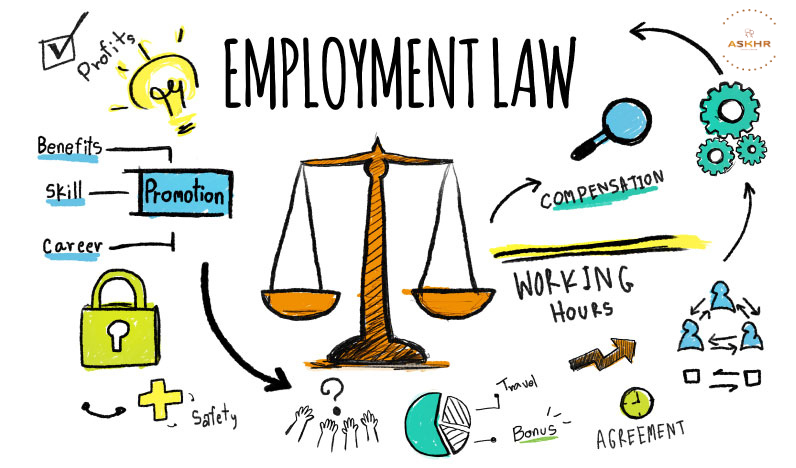 Profits
EMPLOYMENT LAW
ASKHR
Benefits
Skill
Promotion
Career
COMPENSATION
WORKING
HOURS
Safety
?
Travel
Bonus
AGREEMENT